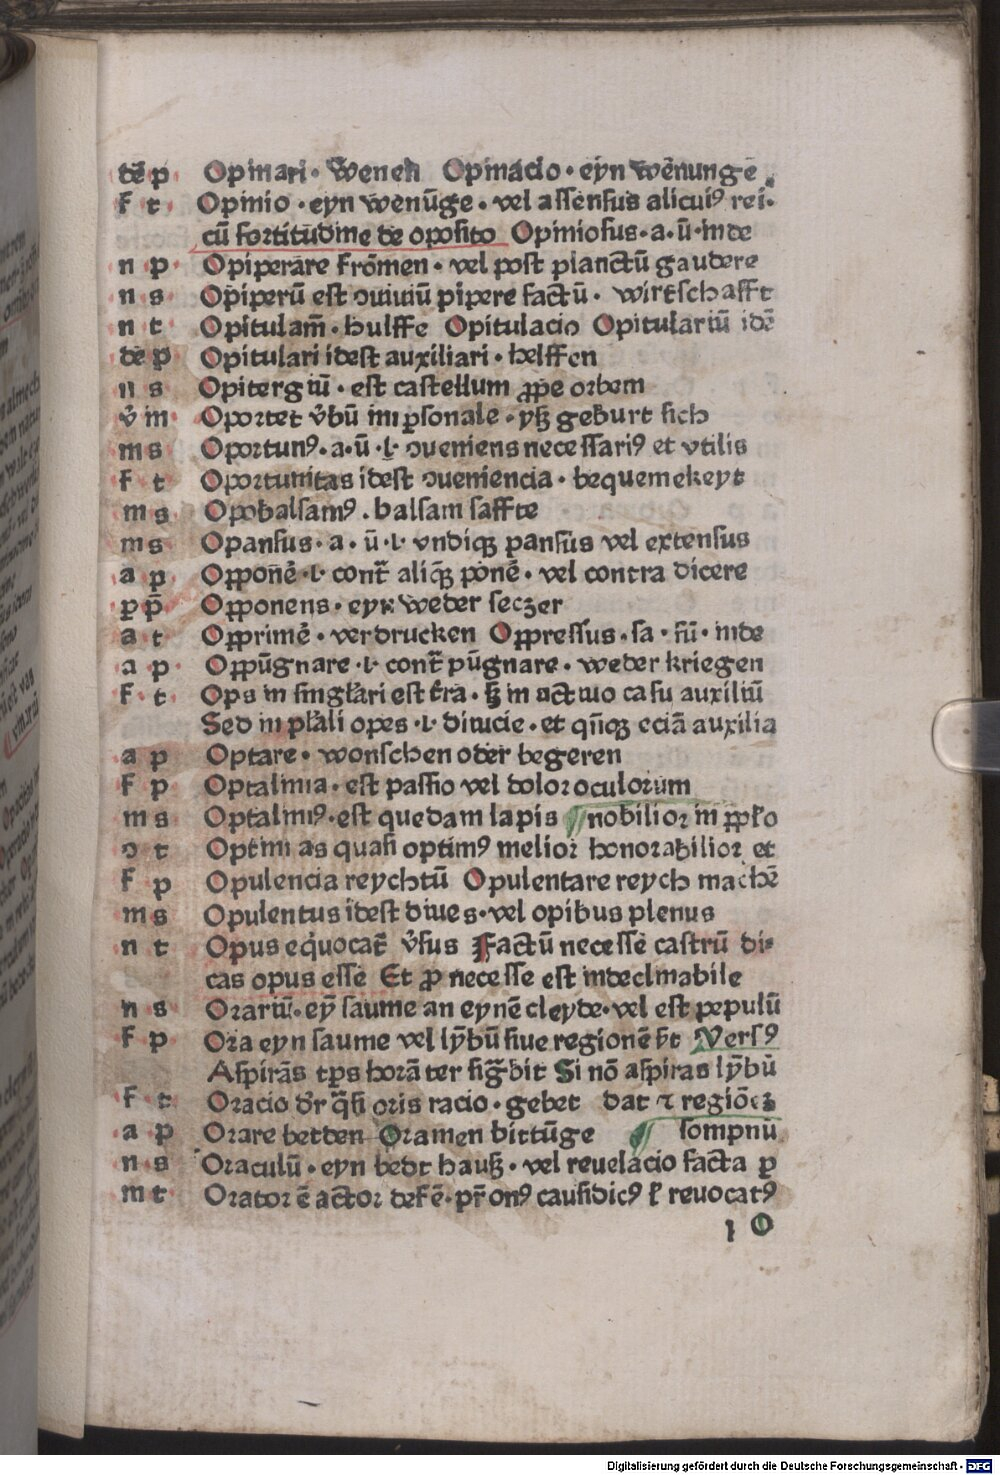 dē p Opinari · Wenen Opinacio · eyn wēnunge
f t Opinio · eyn wenūge · vel assensus alicuiꝰ rei·
cū fortitudine de oposito Opiniosus · a · ū · inde
n p Opiperare frōmen · vel post planctū gaudere
n s Opiperū est ꝯuiuiū pipere factū · wirtschafft
n t Opitulam̄ · hulffe Opitulacio Opitulariū idē
dē p Opitulari idest auxiliari · helffen
n s Opitergiū · est castellum ꝓpe orbem
v̄ im Oportet v̄bū imꝑsonale · yß geburt sich
m s Oportunꝰ · a · ū · l · ꝯueniens necessariꝰ et vtilis
f t Oportunitas idest ꝯueniencia · bequemekeyt
m s Opobalsamꝰ · balsam saffte
m s Opansus · a · ū · l · vndiqꝫ pansus vel extensus
a p Oppoñē · l · cont̄ aliqꝫ ponē · vel contra dicere
p p̄ Opponens · eyn weder seczer
a t Opprimē · verdrucken Oppressus · sa · sū · inde
a p Oppūgnare · l · cont̄ pūgnare · weder kriegen
f · t · Ops in singl̄ari est t̄ra · sꝫ in actiuo casu auxiliū
Sed in pl̄ali opes · l · diuicie · et qn̄qꝫ eciā auxilia
a p Optare · wonschen oder begeren
f p Optalmia · est passio vel dolor oculorum
m s Optalmiꝰ · est quedam lapis ¶ nobilior in ꝓp̄ło
ꝯ t Optimas quasi optimꝰ melior honorabilior et
f p Opulencia reychtū Opulentare reych machē
m s Opulentus idest diues · vel opibus plenus
n t Opus equocat̄ v̄sus Factū necesse castrū di-
cas opus esse Et ꝓ necesse est indeclinabile
n s Orariū · eȳ saume an eynē cleyde · vel est pepulū
f p Ora eyn saume vel lȳbū siue regionē v̄t Versꝰ
Aspirās tp̄s horā ter sig̅bit Si nō aspiras lȳbū
f t Oracio dr̄ q̄si oris racio · gebet dat ⁊ regiōeꝫ
a p Orare betden Oramen bittūge ¶ sompnū
n s Oraculū · eyn bedt hauß · vel reuelacio facta ꝑ
m t Orator ē actor defē · pr̄onꝰ causidicꝰ ł reuocatꝰ
l O